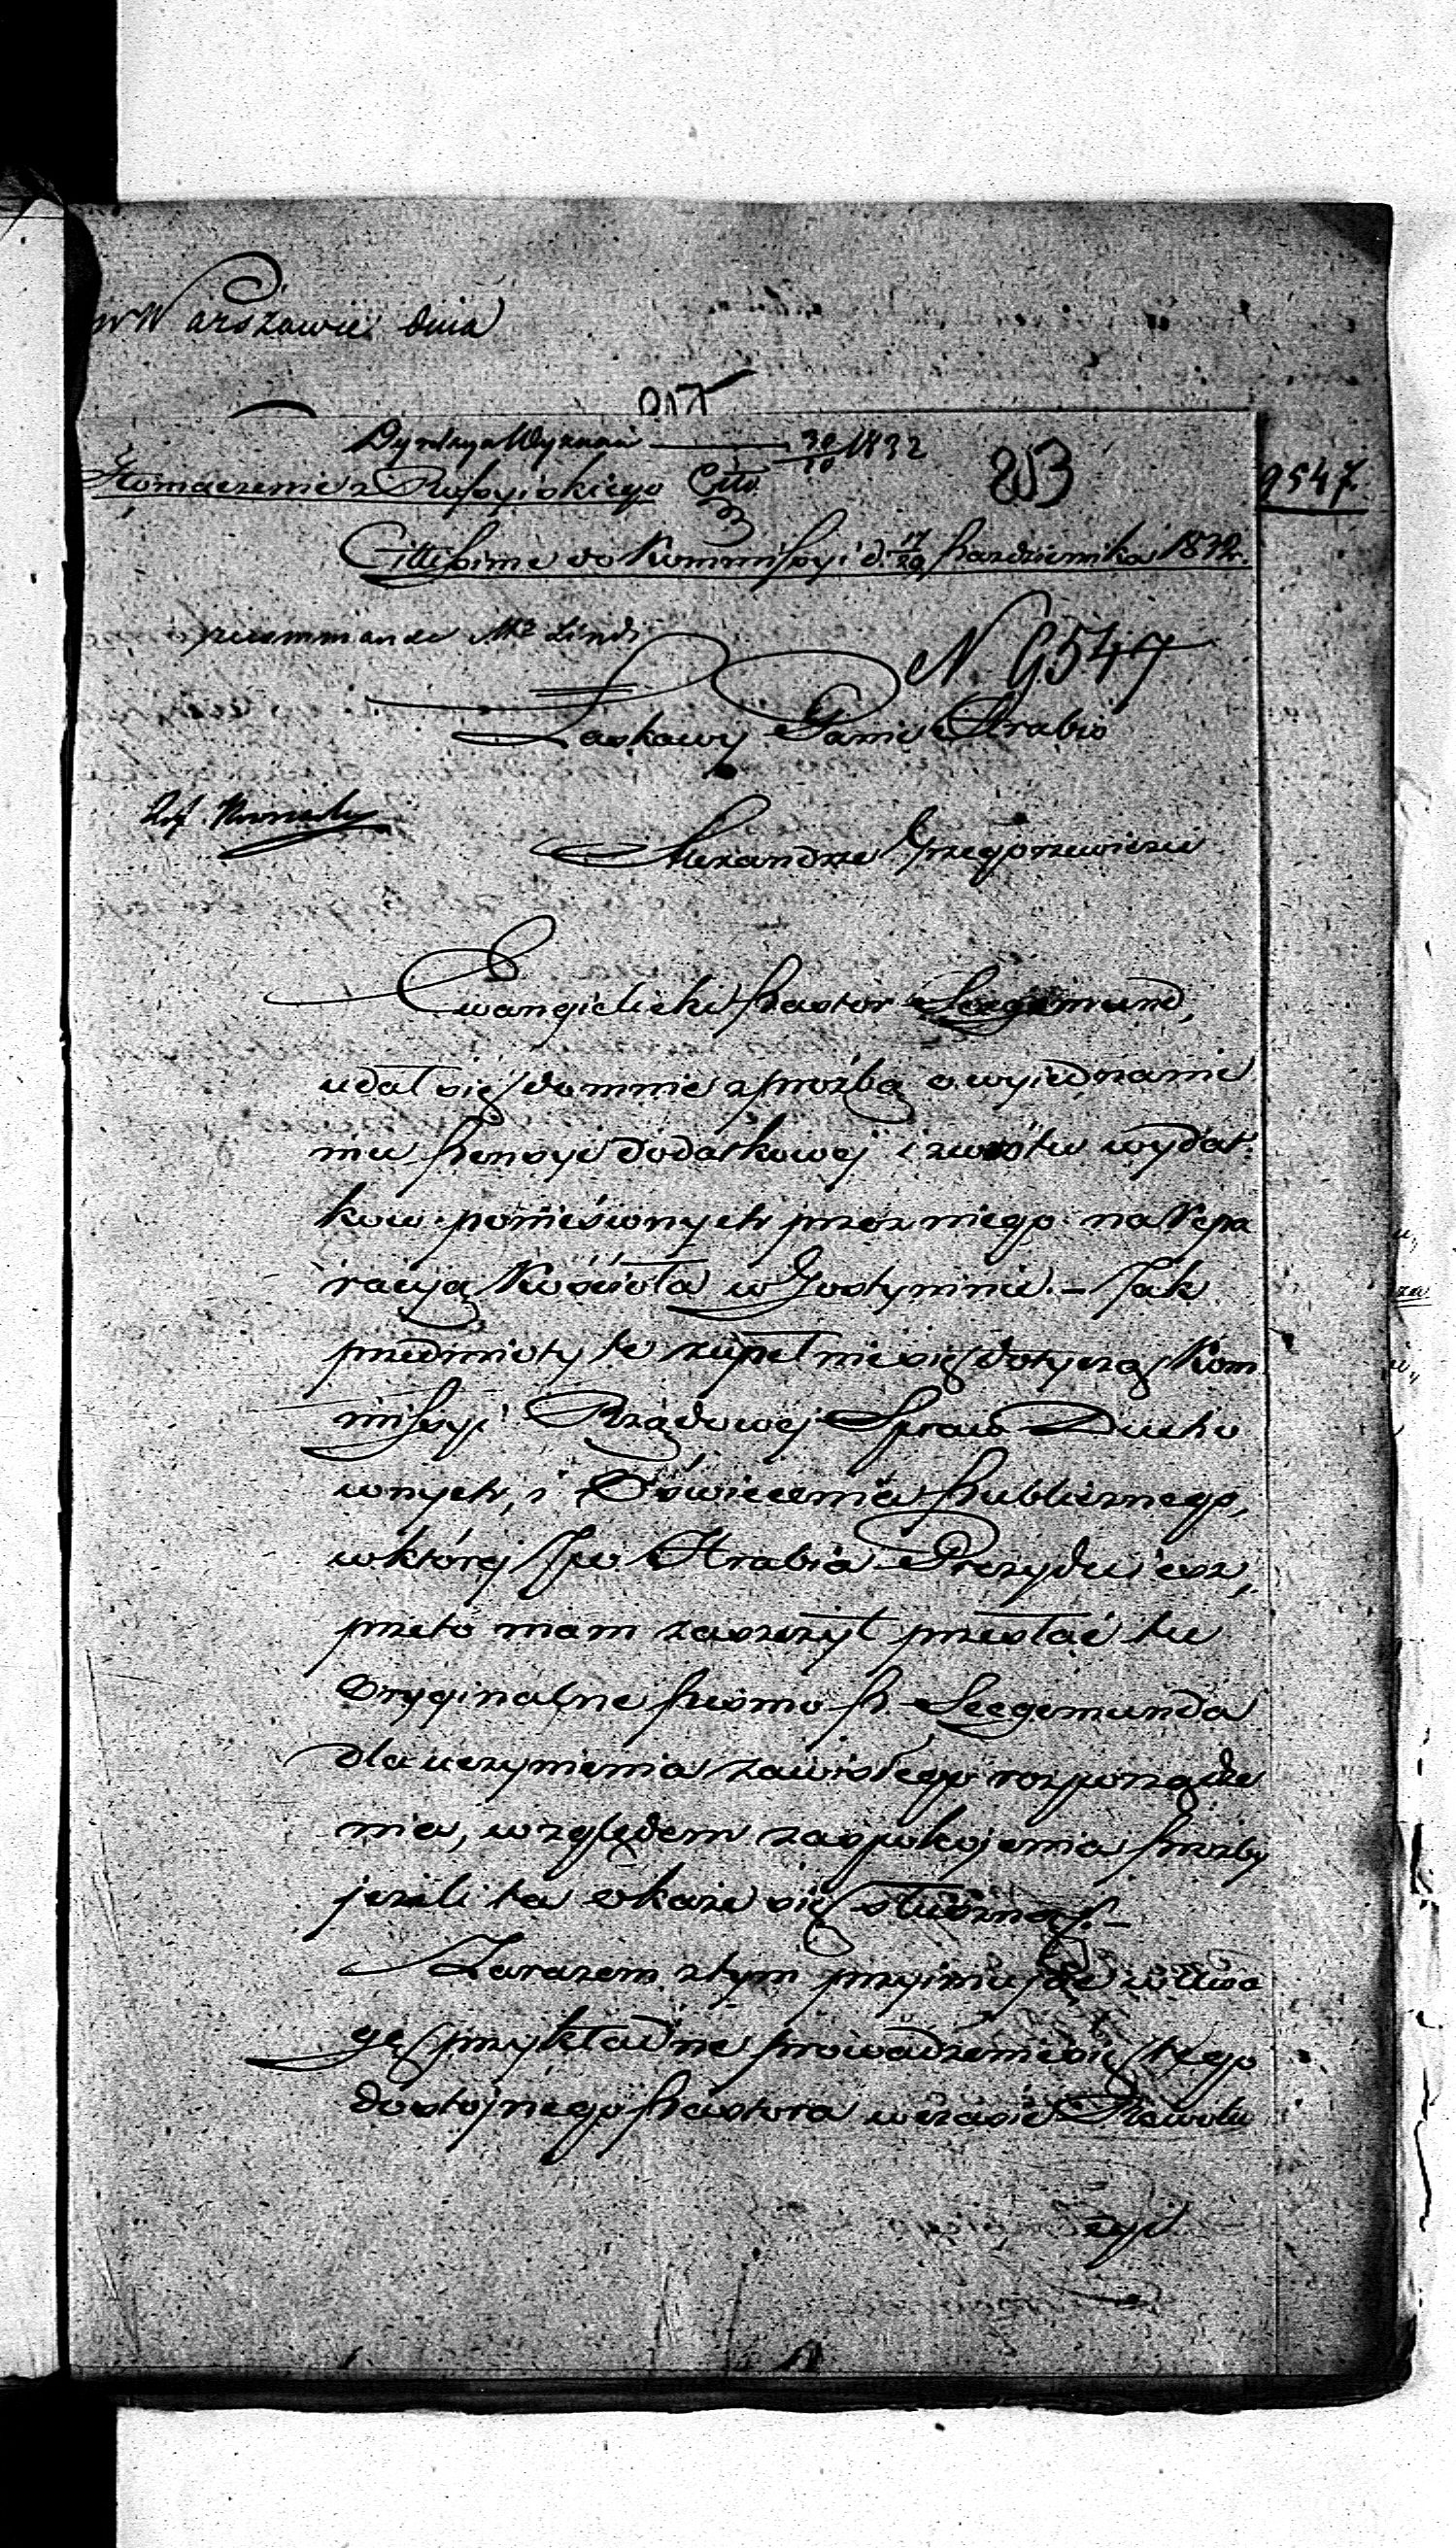 w Warszawie dnia
Dyrekcya Wyznań 30/10 1832
Tłomaczenie z Rossyiskiego Cito 203
9547.
Cittissime do Kommissyi d. 17/29 Pazdziernika 1832r.
N 9547
Łaskawy Panie Hrabio
Alexandrze Grzegorzewiczu
Ewangielicki Pastor Seegemund,
udał się do mnie z proźbą o wyiednanie
mu Pensyi dodatkowej i zwrotu wydat-
kow poniesionych przez niego na Repa
racyą Kościoła w Gostyninie. – Jak
przedmioty te zupełnie się dotyczą Kom
missyi Rządowej Spraw Ducho
wnych, i Oświecenia Publicznego,
w której JW. Hrabia Prezyduiesz,
przeto mam zaszczyt przesłać tu
Oryginalne Pismo P. Seegemunda
dla uczynienia zawisłego rozporządze
nia, względem zaspokojenia Proźby
jeżeli ta okaże się słuszną. –
Zarazem z tym przyimując w uwa
gę przykładne prowadzenie się tego
dostojnego Pastora w czasie Rewolu
cyi